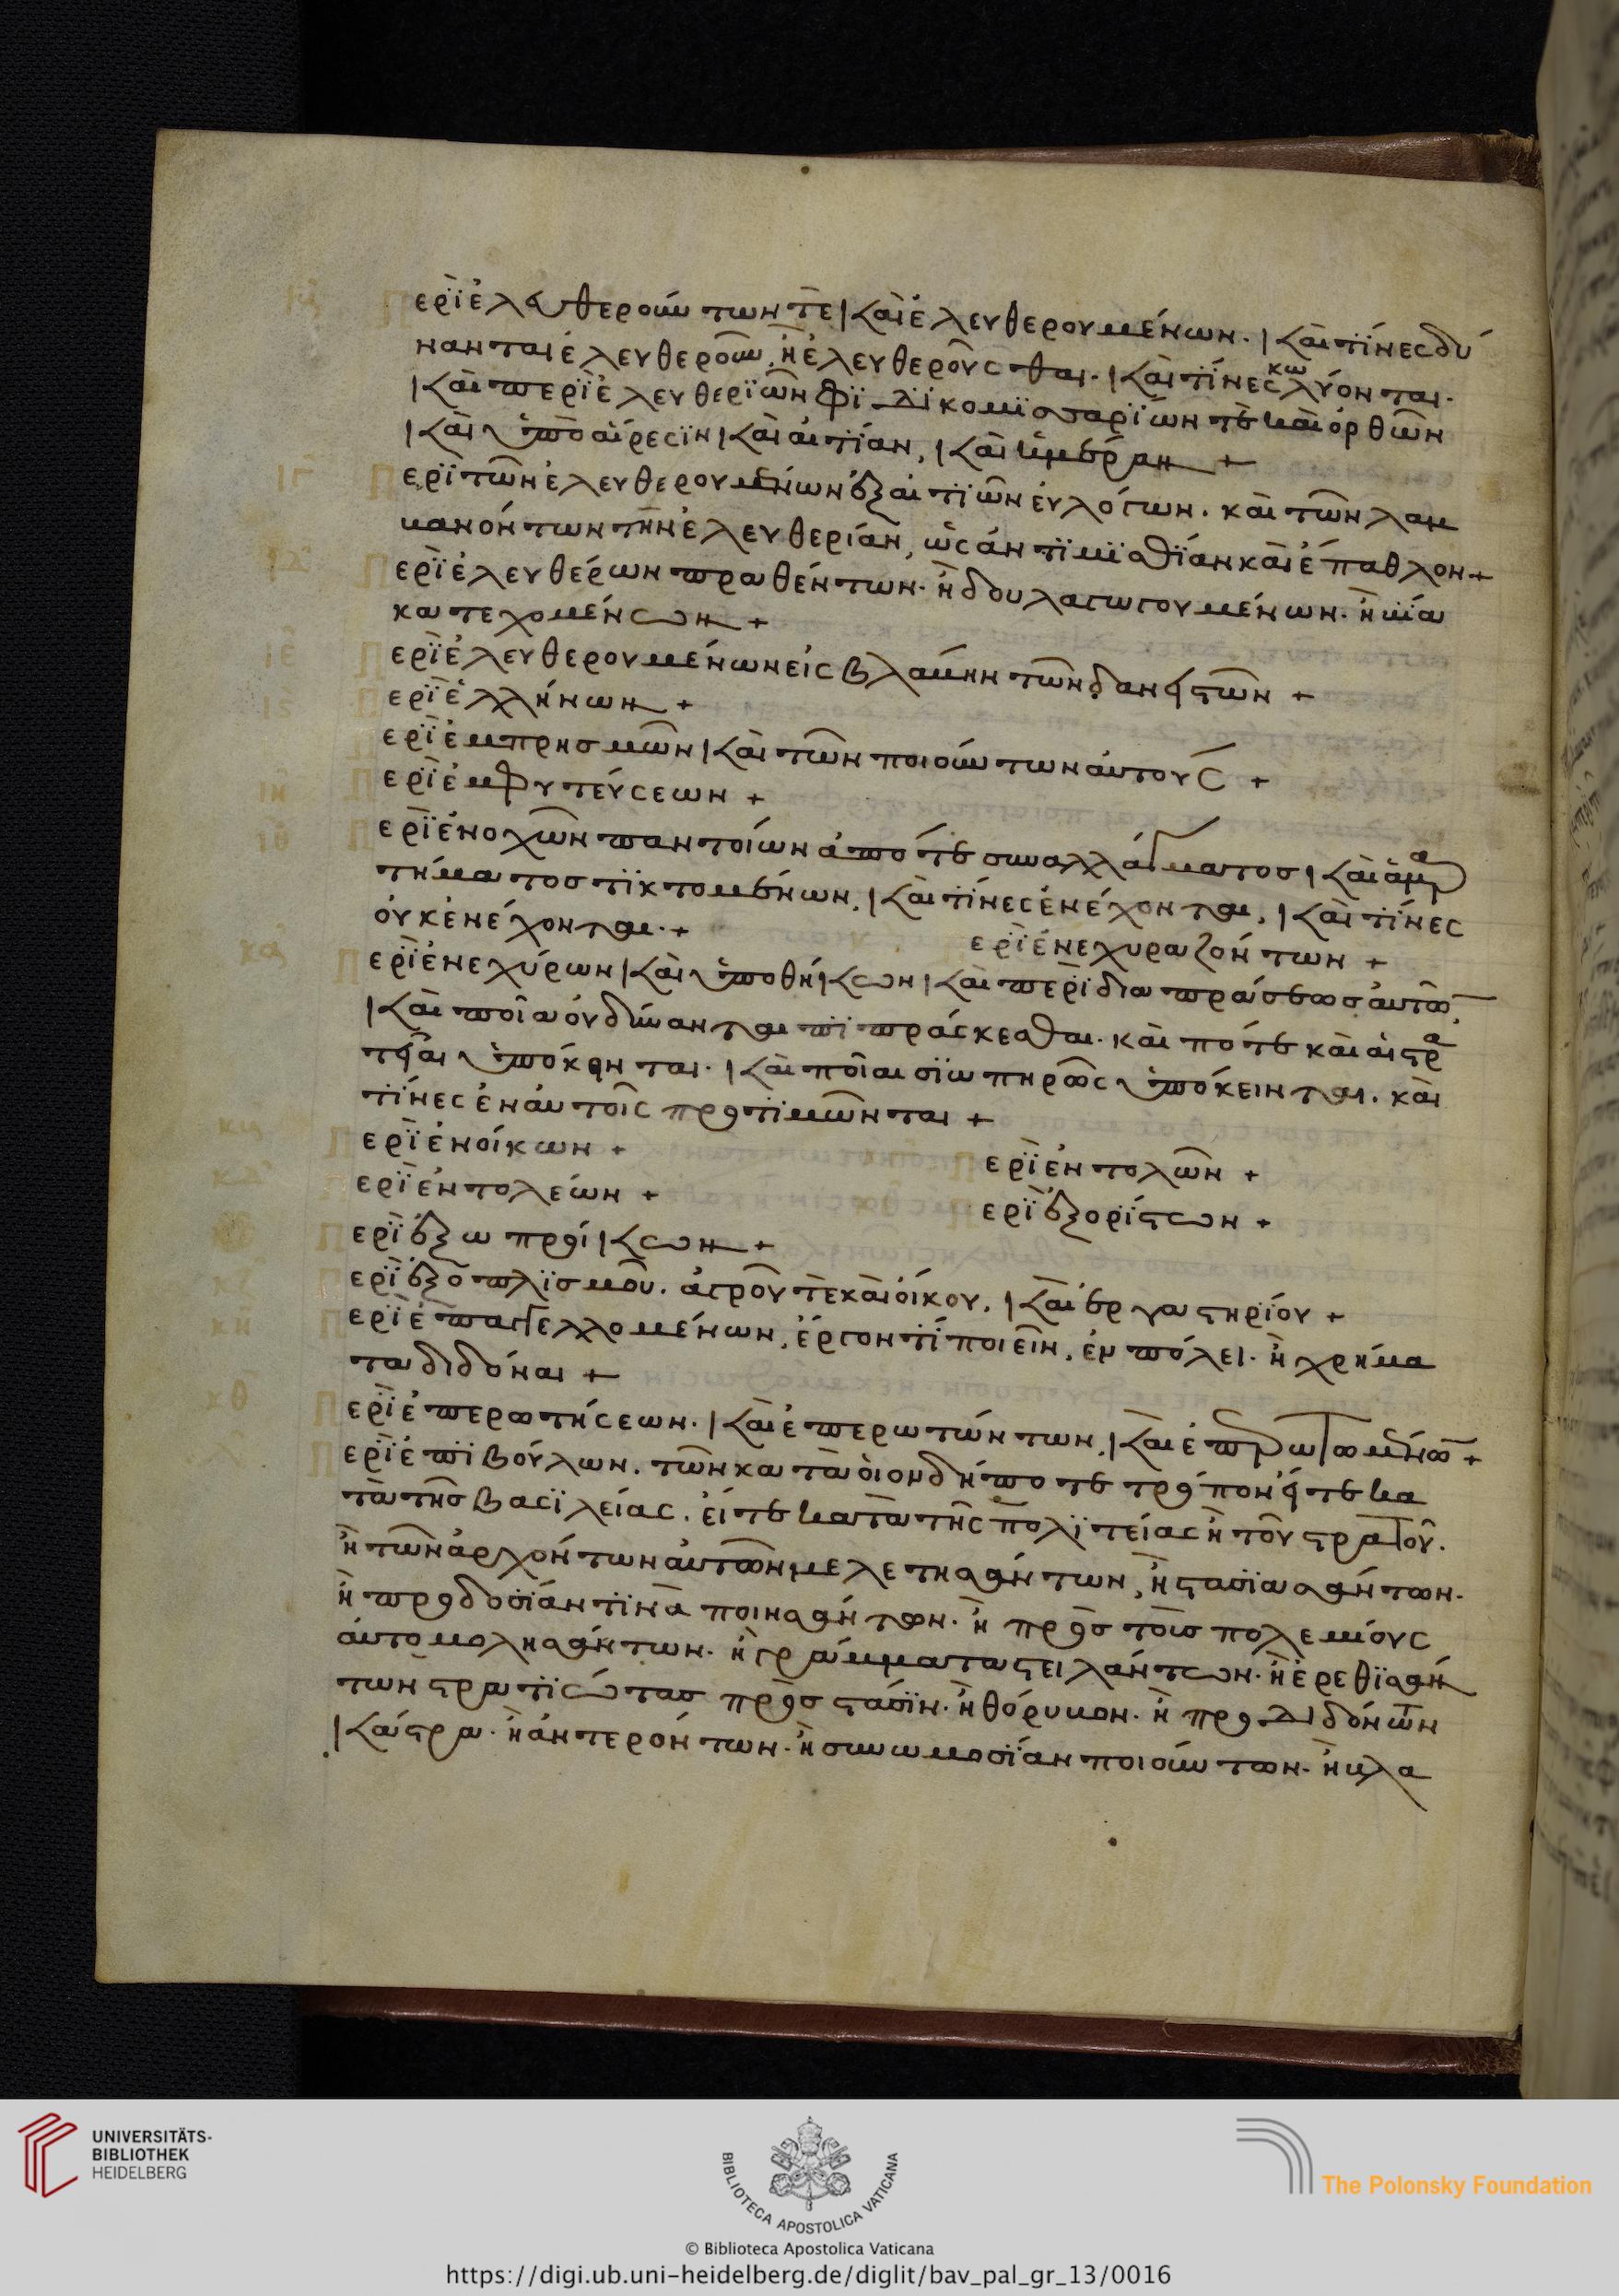 ιβ Περὶ ἐλευθερούντων τὲ καὶ ἐλευθερουμένων. καὶ τίνες δύ
νανται ἐλευθεροῦν, ἢ ἐλευθεροῦσθαι. καὶ τίνες κωλύονται.
καὶ περὶ ἐλευθεριῶν φιδικομισσαρίων τε καὶ ὀρθῶν
καὶ ὑπὸ αἵρεσιν καὶ αἰτίαν, καὶ ἡμέραν +
ιγ Περὶ τῶν ἐλευθερουμένων ἐξ αἰτιῶν εὐλόγων. καὶ τῶν λαμ
βανόντων τὴν ἐλευθερίαν, ὡς ἀντιμισθίαν καὶ ἔπαθλον +
ιδ Περὶ ἐλευθέρων πραθέντων. ἢ δουλαγωγουμένων. ἢ βία
κατεχομένων +
ιε Περὶ ἐλευθερουμένων εἰς βλάβην τῶν δανειστῶν +
ις Περὶ ἑλλήνων +
Περὶ ἐμπρησμῶν καὶ τῶν ποιούντων αὐτούς +
ιη Περὶ ἐμφυτεύσεων +
ιθ Περὶ ἐνοχῶν παντοίων ἀπό τε συναλλάγματος καὶ ἁμαρ
τήματος τικτομένων, καὶ τίνες ἐνέχονται, καὶ τίνες
οὐκ ἐνέχονται. +
ερὶ ἐνεχυραζόντων +
κα Περὶ ἐνεχύρων καὶ ὑποθηκῶν καὶ περὶ διαπράσεως αὐτῶν,
καὶ ποῖα οὐ δύνανται πιπράσκεσθαι. καὶ πότε καὶ
ὑπόκεινται. καὶ ποῖαι σιωπηρῶς ὑπόκεινται. καὶ
τίνες ἐν αὐτοῖς προτιμῶνται +
κβ Περὶ ἐνοίκων +
Περὶ ἐντολῶν +
κδ ερὶ ἐντολέων +
Περὶ ἐξορίστων +
Περὶ ἐξωπροίκων +
κζ Περὶ ἐξοπλισμοῦ. ἀγροῦ τὲ καὶ οἴκου. καὶ ἐργαστηρίου +
κη Περὶ ἐπαγγελλομένων, ἔργον τί ποιεῖν, ἐν πόλει. ἢ χρήμα
τα διδόναι +
κθ Περὶ ἐπερωτήσεων. καὶ ἐπερωτώντων, καὶ ἐπερωτωμένων +
Περὶ ἐπιβούλων. τῶν κατὰ οἱονδήποτε τρόπον εἴτε κα
τὰ τῆς βασιλείας. εἴτε κατὰ τῆς πολιτείας ἢ τοῦ στρατοῦ.
ἢ τῶν ἀρχόντων αὐτῶν μελετησάντων, ἢ στασιασάντων.
ἢ προδοσίαν τινὰ ποιησάντων. ἢ πρὸς τοὺς πολεμίους
αὐτομολησάντων. ἢ γράμματα στειλάντων. ἢ ἐρεθισάν
των στρατιώτας πρὸς στάσιν. ἢ θόρυβον. ἢ προδιδόντων
κάστρα. ἢ ἀνταιρόντων. ἢ συνωμοσίαν ποιούντων. ἢ βλα
UNIVERSITÄTS-
BIBLIOTHEK
HEIDELBERG
BIBLIOTECA APOSTOLICA VATICANA
The Polonsky Foundation
© Biblioteca Apostolica Vaticana
https://digi.ub.uni-heidelberg.de/diglit/bav_pal_gr_13/0016